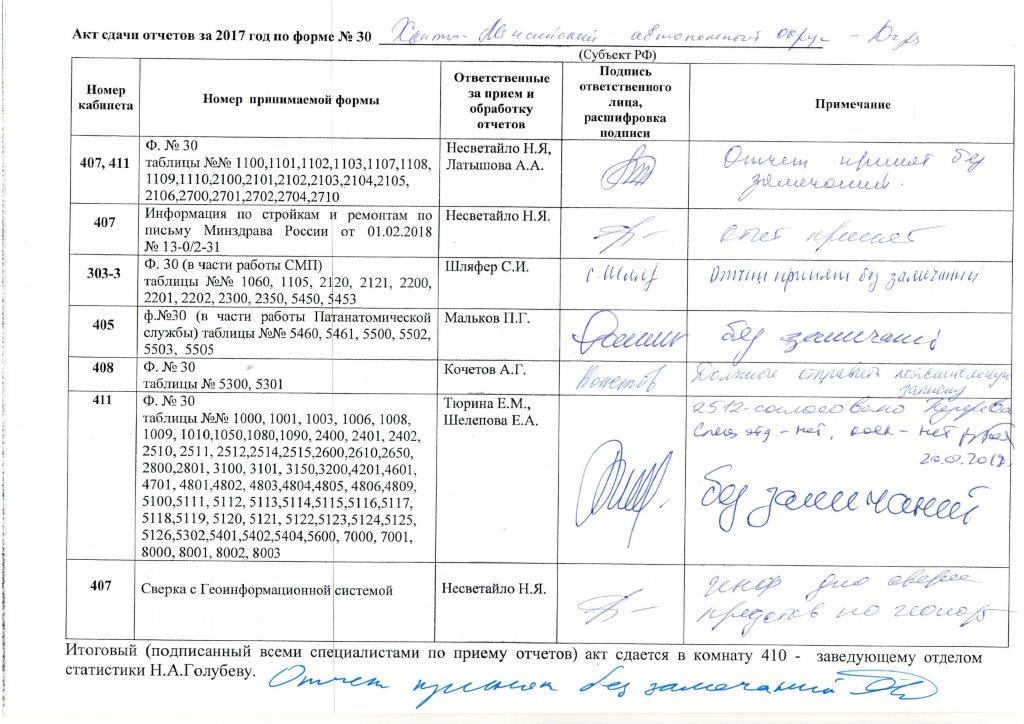 Акт сдачи отчетов за 2017 год по форме № 30 Ханты-Мансийский автономный округ - Югра
(Субъект РФ)
Номер кабинета
Номер принимаемой формы
Ответственные за прием и обработку отчетов
Подпись ответственного лица, расшифровка подписи
Примечание
407, 411
Ф. № 30
таблицы №№ 1100,1101,1102,1103,1107,1108,
1109,1110,2100,2101,2102,2103,2104,2105,
2106,2700,2701,2702,2704,2710
Несветайло Н.Я,
Латышова А.А.
Отчет принят без
замечаний.
407
Информация по стройкам и ремонтам по
письму Минздрава России от 01.02.2018
№ 13-0/2-31
Несветайло Н.Я.
отчет принят
303-3
Ф. 30 (в части работы СМП)
таблицы №№ 1060, 1105, 2120, 2121, 2200,
2201, 2202, 2300, 2350, 5450, 5453
Шляфер С.И.
Отчет принят без замечаний
405
ф.№30 (в части работы Патанатомической
службы) таблицы №№ 5460, 5461, 5500, 5502,
5503, 5505
Мальков П.Г.
без замечаний
408
Ф. № 30
таблицы № 5300, 5301
Кочетов А.Г.
Кочетов
Должны отправить пояснительную
записку
411
Ф. № 30
таблицы №№ 1000, 1001, 1003, 1006, 1008,
1009, 1010,1050,1080,1090, 2400, 2401, 2402,
2510, 2511, 2512,2514,2515,2600,2610,2650,
2800,2801, 3100, 3101, 3150,3200,4201,4601,
4701, 4801,4802, 4803,4804,4805, 4806,4809,
5100,5111, 5112, 5113,5114,5115,5116,5117,
5118,5119, 5120, 5121, 5122,5123,5124,5125,
5126,5302,5401,5402,5404,5600, 7000, 7001,
8000, 8001, 8002, 8003
Тюрина Е.М.,
Шелепова Е.А.
2512-согласовано
отд - нет, - нет
без замечаний
407
Сверка с Геоинформационной системой
Несветайло Н.Я.
инф для сверки
Итоговый (подписанный всеми специалистами по приему отчетов) акт сдается в комнату 410 - заведующему отделом
статистики Н.А.Голубеву. Отчет принят без замечаний